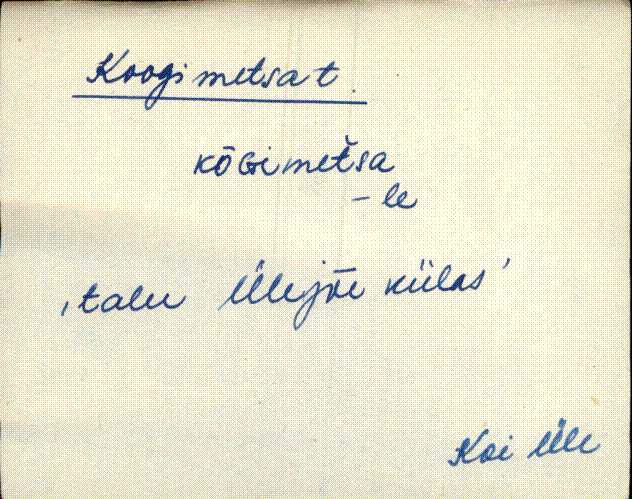 Koogimetsat.
kōGimet̆sa
-le
‚talu Ülejõe külas’
Koi Üle